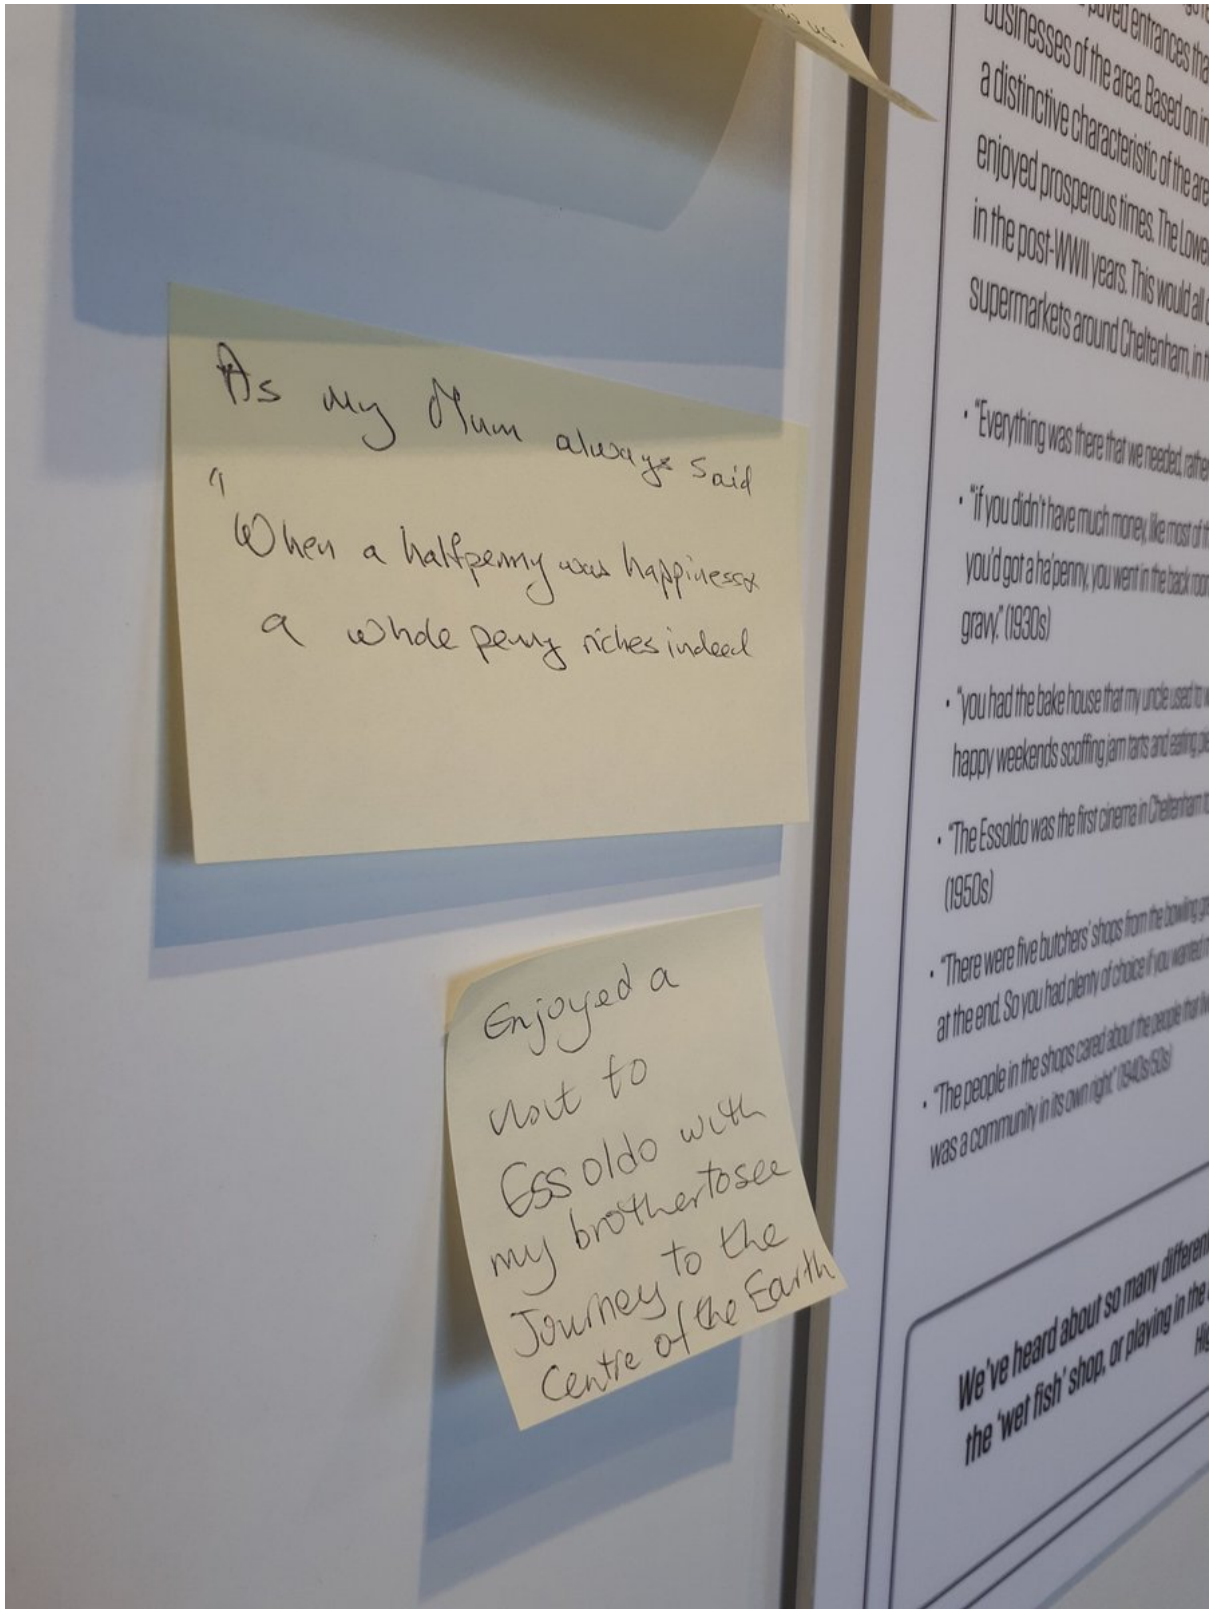 us.
As my Mum always said
"
When a halfpenny was happiness &
a whole penny riches indeed
Enjoyed a
visit to
Essoldo with
my brother to see
Journey to the
Centre of the Earth
paved entrances
businesses of the area. Based on
a distinctive characteristic of the
enjoyed prosperous times. The Lowe
in the post-WWII years. This would all
supermarkets around Cheltenham, in
• "Everything was there that we needed, rather
• "if you didn't have much money, like most of
you'd got a ha'penny, you went in the back
gravy." (1930s)
• "you had the bake house that my uncle used to
happy weekends scoffing jam tarts and eating
• "The Essoldo was the first cinema in Cheltenham
(1950s)
• "There were five butchers' shops from the bowling
at the end. So you had plenty of choice if you wanted
• "The people in the shops cared about the people that
was a community in its own right" (1940s/50s)
We've heard about so many different
the 'wet fish' shop, or playing in the